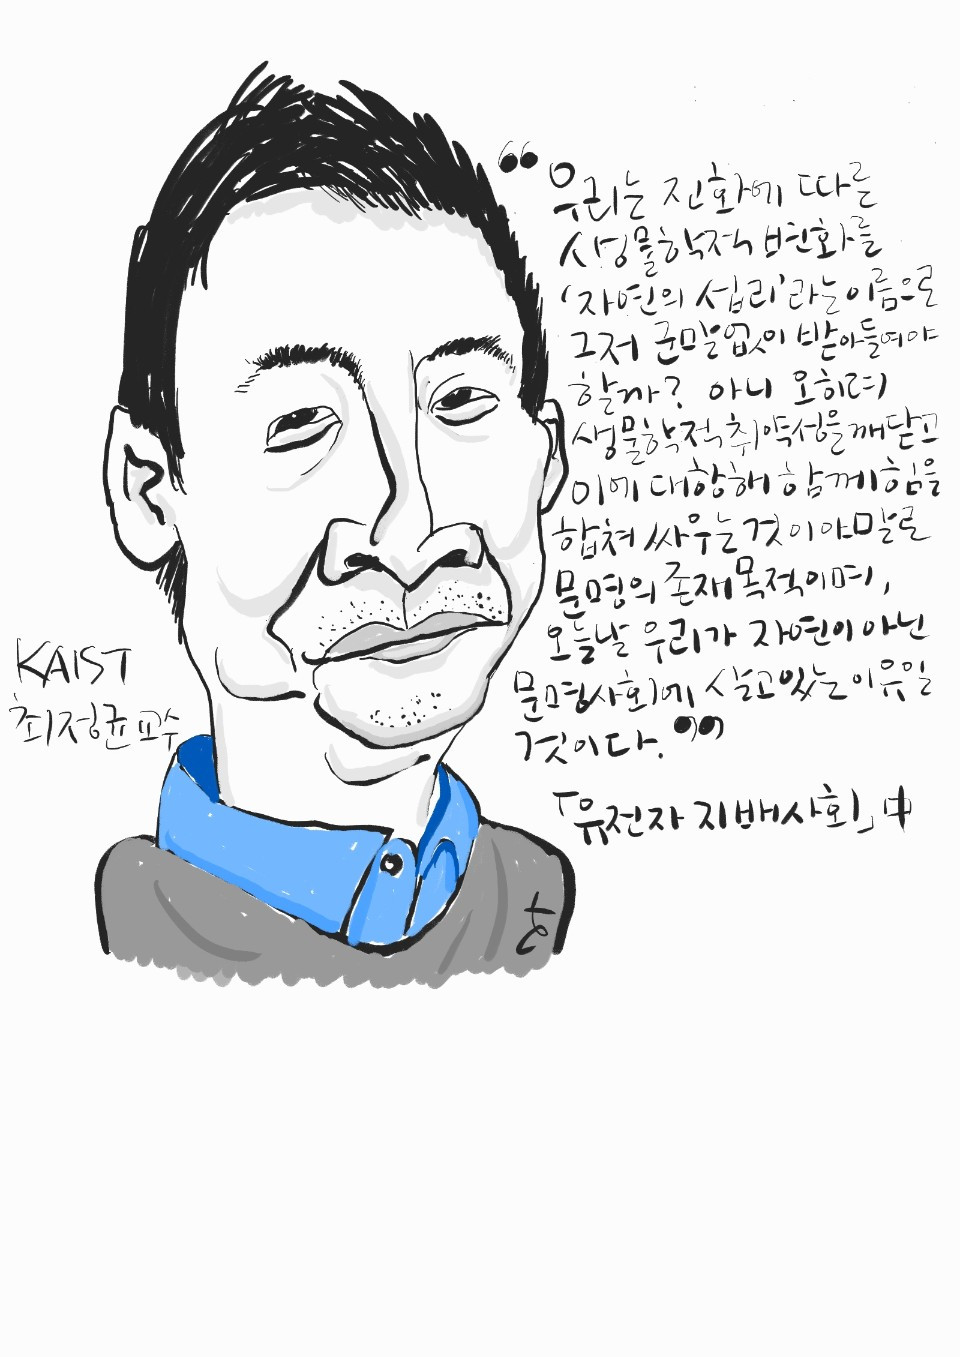 “우리는 진화에 따를
생물학적 변화를
‘자연의 섭리’라는 이름으로
그저 군말없이 받아들여야
할까? 아니 오히려
생물학적 취약성을 깨닫고
이에 대항해 함께 힘을
합쳐 싸우는 것이야말로
문명의 존재 목적이며,
오늘날 우리가 자연이 아닌
문명사회에 살고 있는 이유일
것이다.”
「유전자 지배사회」 中
KAIST
최정균 교수